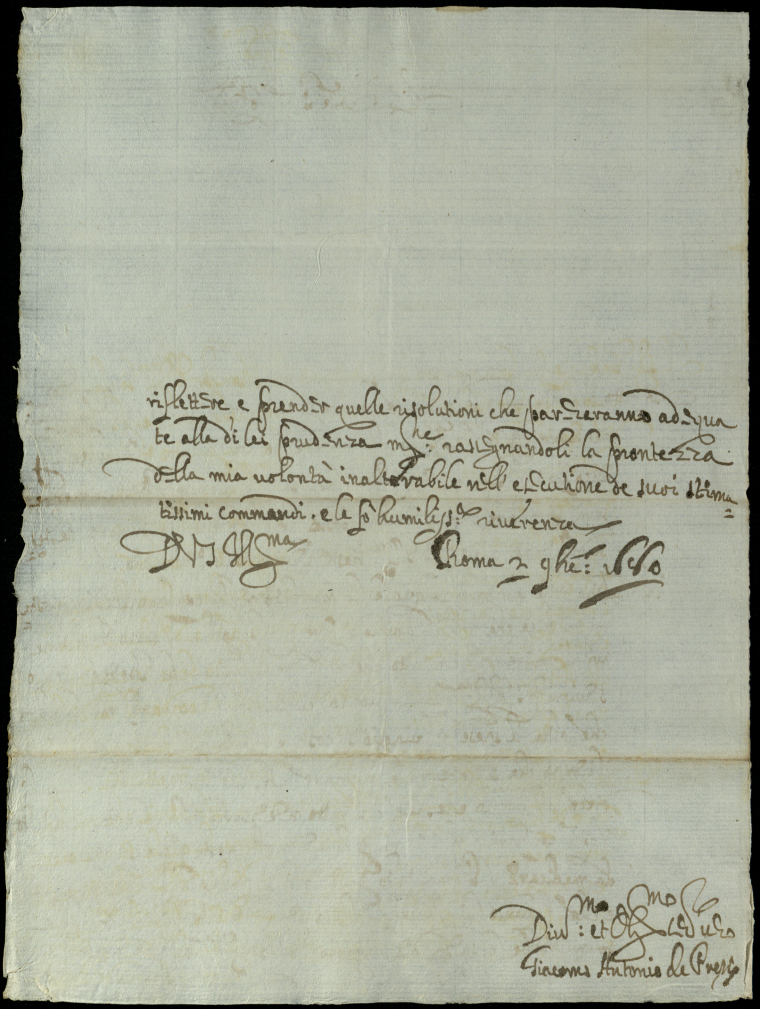 riflettere e prender quelle risolutioni che pareranno adequa
te alla di lei prudenza m.che: rasegnandoli la prontezza
della mia volontà inalterabile nell' esecutione de suoi stima=
tissimi commandi, e le fò humiliss.a riverenza
D V S Ill.ma
Roma 2 9bre: 1680
Div.mo: et Obl.mo ser vero
Giacomo Antonio de